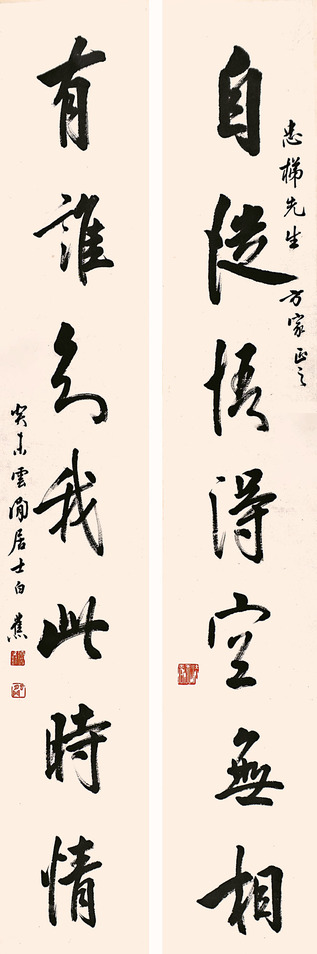 忠梯先生方家正之
自從悟得空無相
有誰知我此時情
癸未雲間居士白蕉